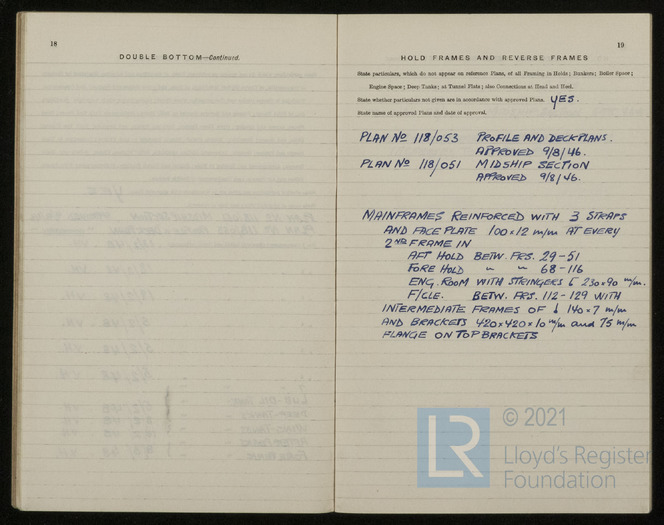 18
DOUBLE BOTTOM—Continued.
19
HOLD FRAMES AND REVERSE FRAMES
State particulars, which do not appear on reference Plans, of all Framing in Holds; Bunkers; Boiler Space;
Engine Space; Deep Tanks; at Tunnel Plats; also Connections at Head and Heel.
State whether particulars not given are in accordance with approved Plans. YES.
State name of approved Plans and date of approval.
PLAN No 118/053 PROFILE AND DECKPLANS.
APPROVED 9/8/46.
PLAN No 118/051 MIDSHIP SECTION
APPROVED 9/8/46.
MAINFRAMES REINFORCED WITH 3 STRAPS
AND FACE PLATE 100x12 m/m AT EVERY
2ND FRAME IN
AFT HOLD BETW. FRS. 29-51
FORE HOLD " " 68-116
ENG. ROOM WITH STRINGERS 230x90 m/m.
F/CLE. BETW. FRS. 112-129 WITH
INTERMEDIATE FRAMES OF 140x7 m/m
AND BRACKETS 420x420x10 m/m and 75 m/m
FLANGE ON TOP BRACKETS
LR
© 2021
Lloyd's Register
Foundation